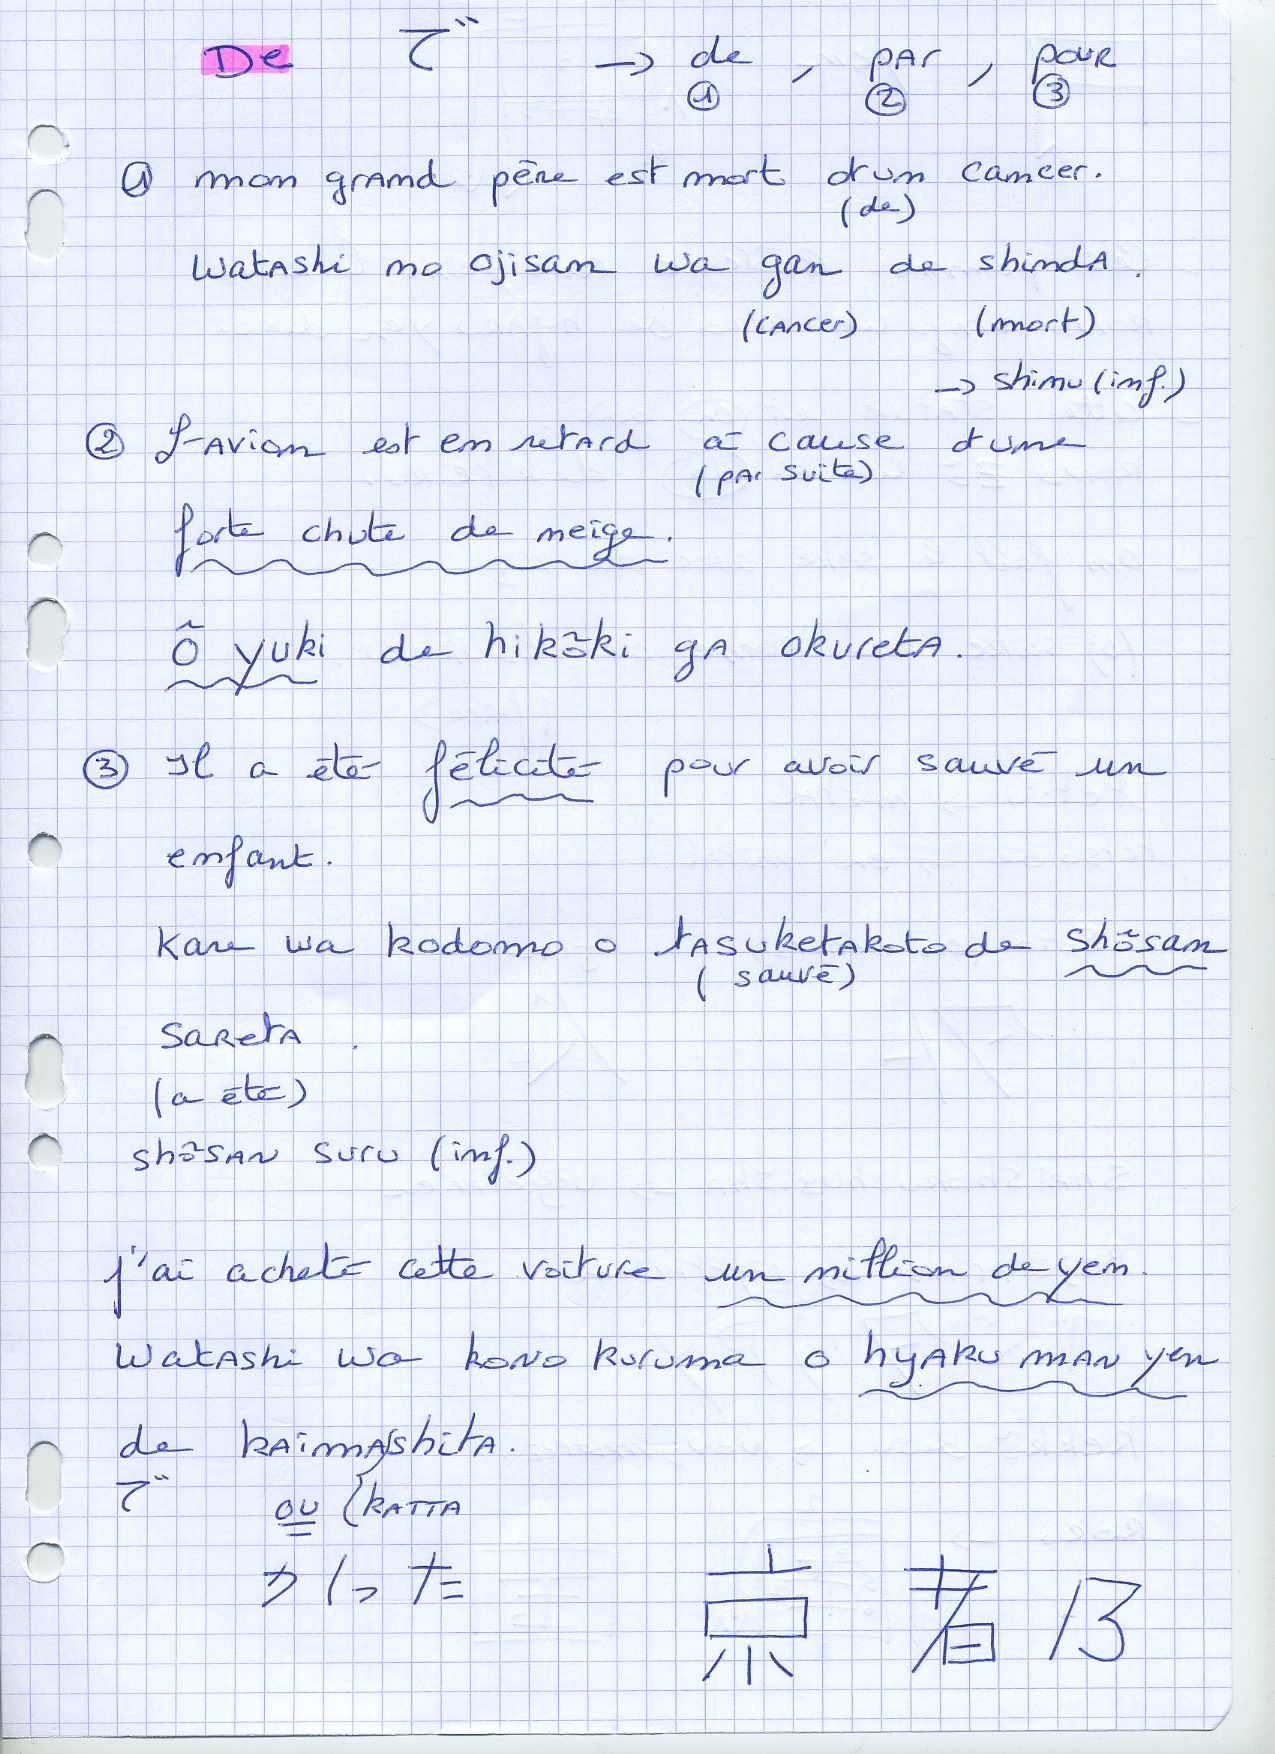 De で → de , par , pour
① ② ③
① mon grand père est mort d'un cancer.
(de)
Watashi no ojisan wa gan de shinda.
(cancer) (mort)
→ shinu (inf.)
② L'avion est en retard à cause d'une
(par suite)
forte chute de neige.
Ô yuki de hikôki ga okureta.
③ Il a été félicité pour avoir sauvé un
enfant.
Kare wa kodomo o tasuketakoto de shôsan
(sauvé)
sareta.
(a été)
shôsan suru (inf.)
j'ai acheté cette voiture un million de yen.
Watashi wa kono kuruma o hyaku man yen
de kaimashita.
で ou (katta
かった
京 者 阝